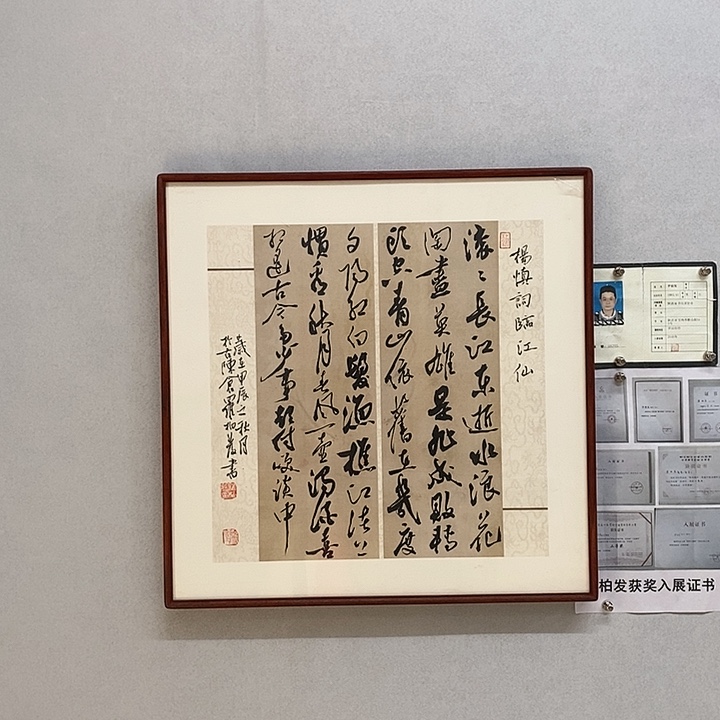 楊慎詞臨江仙
滚〻長江東逝水浪花
淘盡英雄是非成敗轉
頭空青山依舊在幾度
夕陽紅白髮漁樵江渚上
慣看秋月春風一壺濁酒喜
相逢古今多少事都付笑談中
歲在甲辰之秋月
於古陳倉羅柏發書
柏发获奖入展证书
入展证书